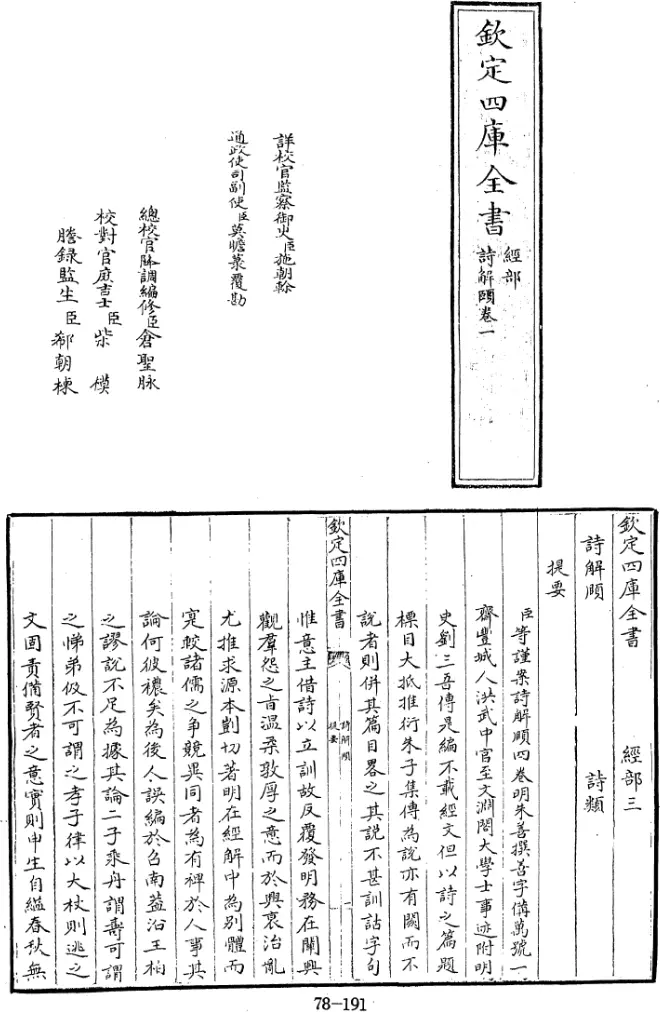 欽定四庫全書
經部
詩解頤卷一
詳校官監察御史臣施朝榦
通政使司副使臣莫瞻菉覆勘
總校官脉調編修臣倉聖脉
校對官庶吉士臣柴模
謄錄監生臣郗朝棟
欽定四庫全書 經部三
詩解頤 詩類
提要
臣等謹案詩解頤四卷明朱善撰善字備萬號一
齋豐城人洪武中官至文淵閣大學士事迹附明
史劉三吾傳是編不載經文但以詩之篇題
標目大抵推衍朱子集傳為說亦有闕而不
說者則併其篇目畧之其說不甚訓詁字句
欽定四庫全書
詩解頤
提要
一
惟意主借詩以立訓故反覆發明務在闡興
觀羣怨之旨溫柔敦厚之意而於興衰治亂
尤推求源本剴切著明在經解中為別體而
寔較諸儒之争競異同者為有裨於人事其
論何彼襛矣為後人誤編於召南葢沿王柏
之謬說不足為據其論二子乘舟謂壽可謂
之悌弟伋不可謂之孝子律以大杖則逃之
文固責備賢者之意實則申生自縊春秋無
78-191